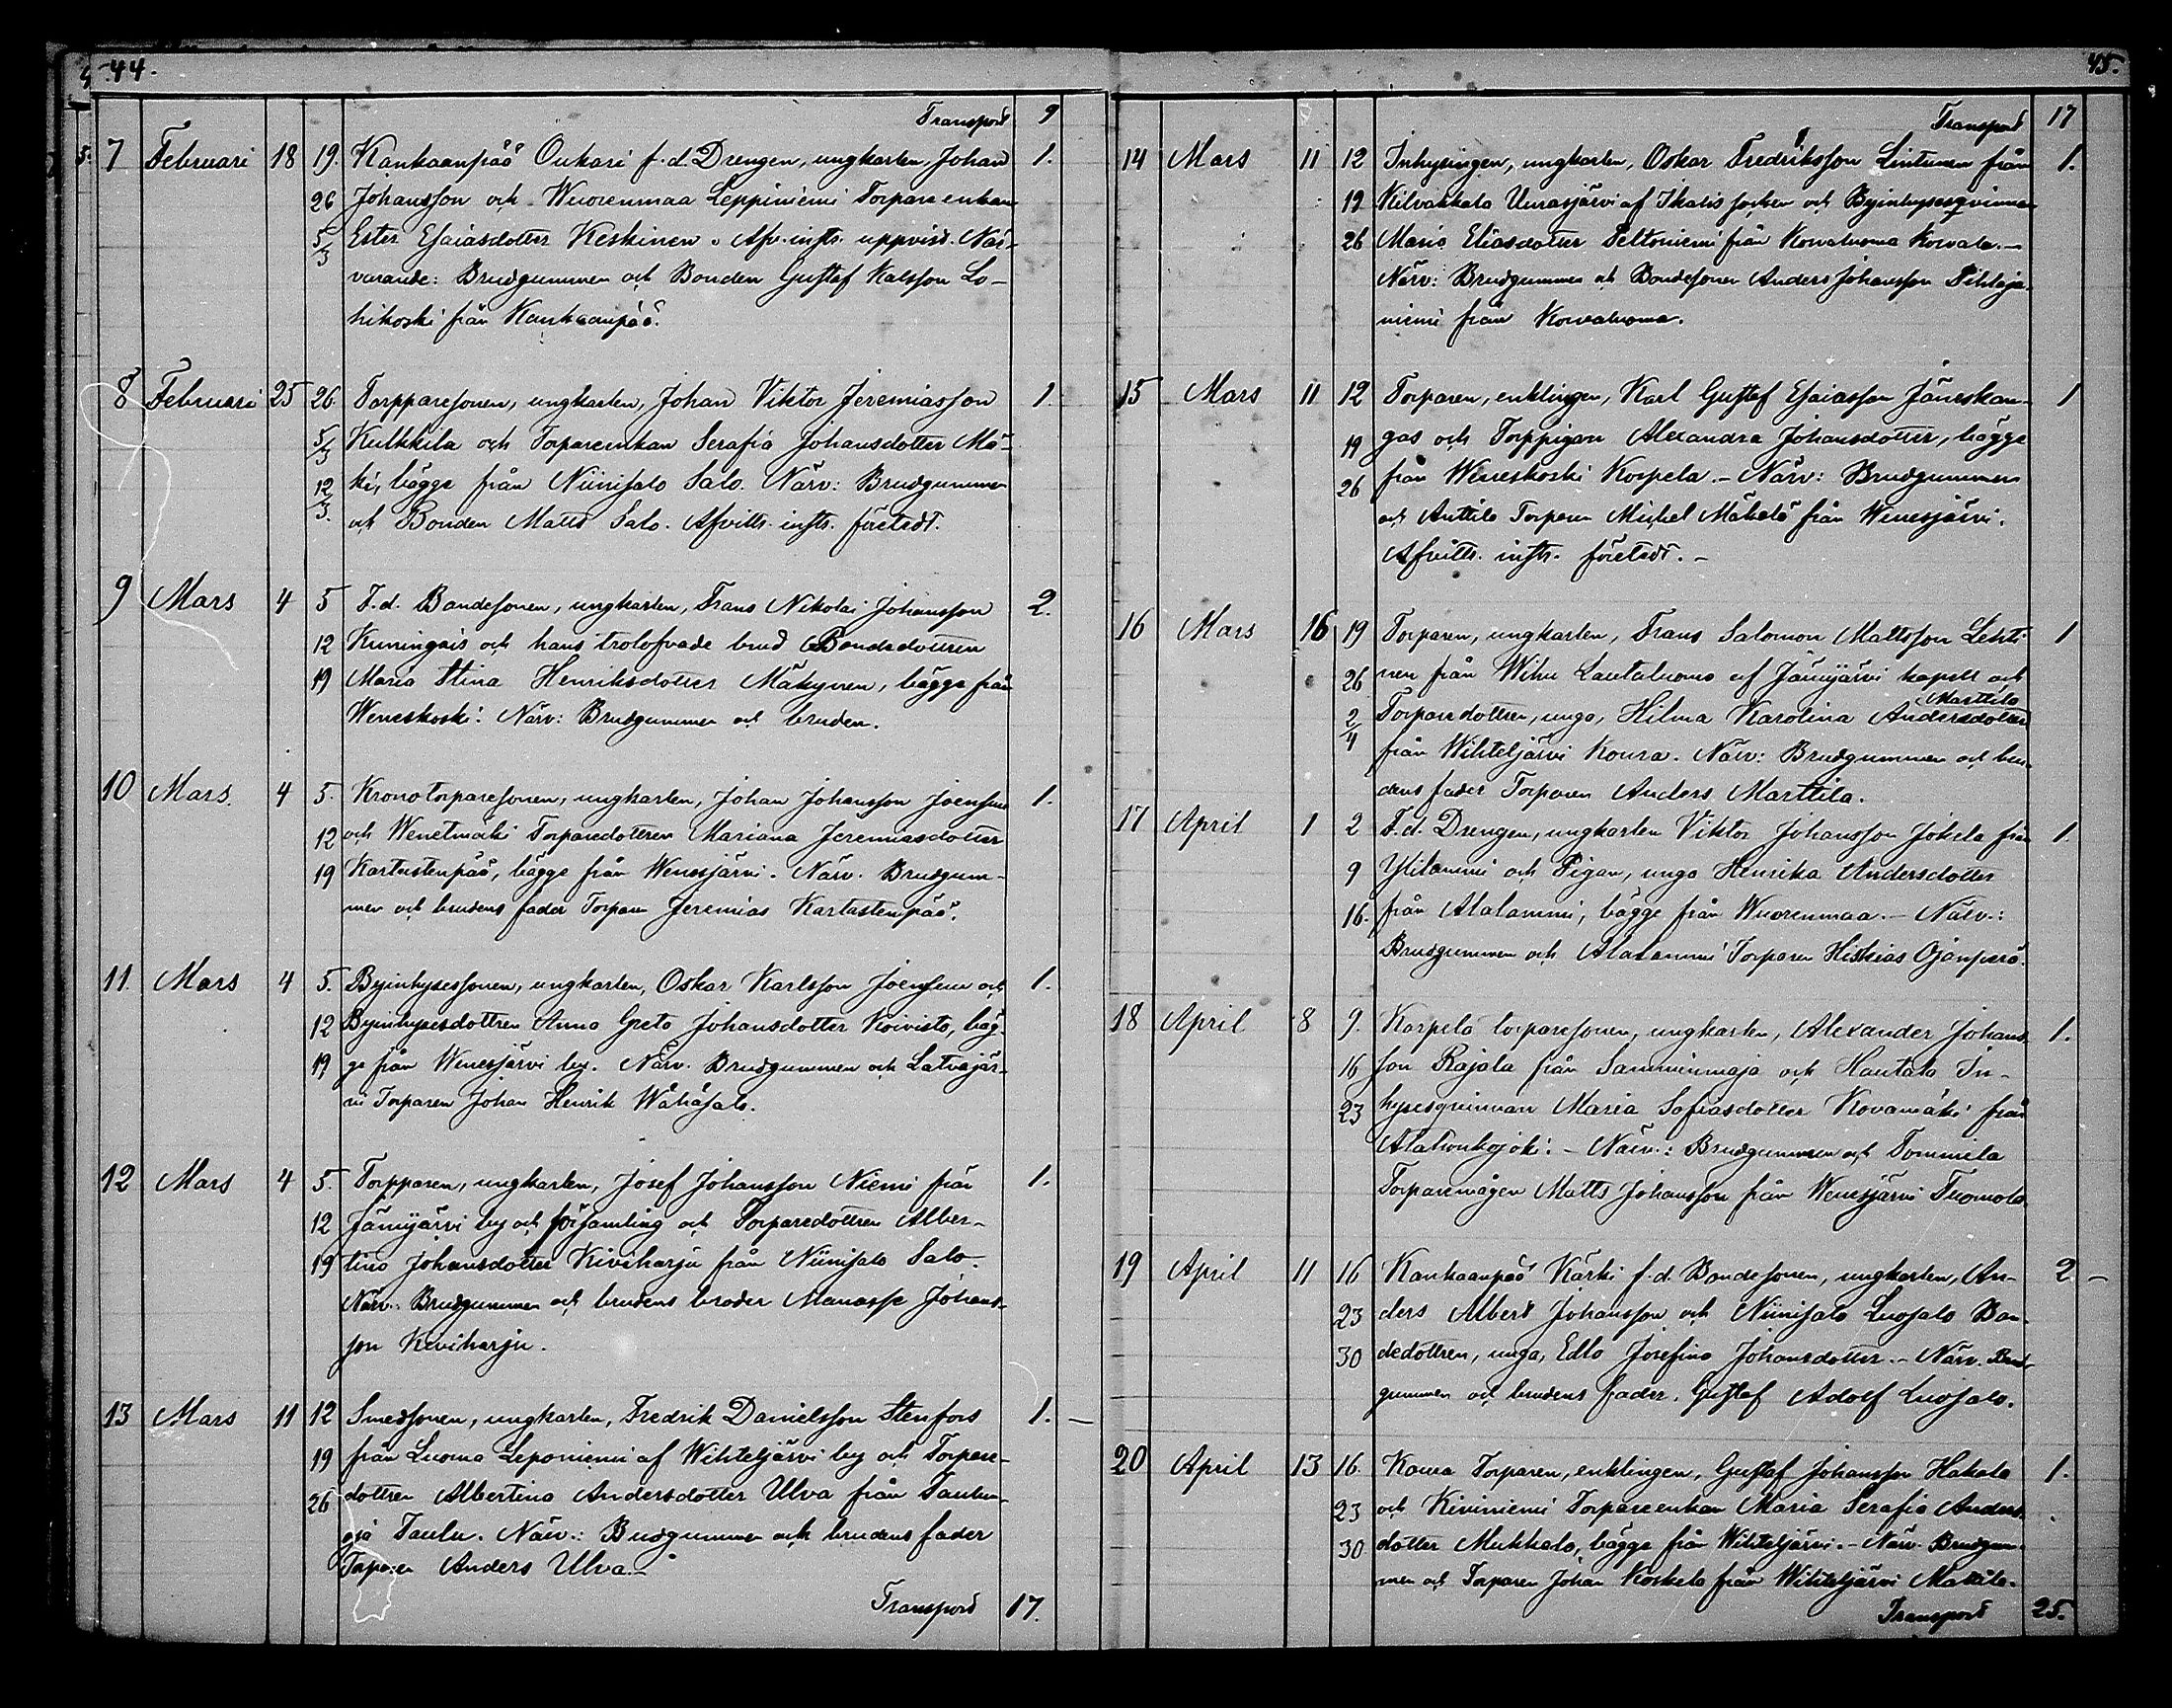 44.
Transport 9
7 Februari 18 19. Kankaanpää Oukari f.d. Drengen, ungkarlen, Johan 1.
26 Johansson och Wuorenmaa Leppiniemi Torpareenkan
5/3 Ester Esaiasdotter Keskinen. Afv. inftr. uppvist. När-
varande: Brudgummen och Bonden Gustaf Kalsson Lo-
hikoski från Kankaanpää.
8 Februari 25 26. Torpparesonen, ungkarlen, Johan Viktor Jeremiasson 1.
5/3 Kulkkila och Torpareenkan Serafia Johansdotter Mä-
12/3. ki, bägge från Niinisalo Salo. Närv: Brudgummen
och Bonden Matts Salo. Afvittr. inftr. företedt.
9 Mars 4 5 F.d. Bondesonen, ungkarlen, Frans Nikolai Johansson 2.
12 Kuningais och hans trolofvade brud Bondedottren
19 Maria Stina Henriksdotter Mäkynen, bägge från
Weneskoski. Närv: Brudgummen och bruden.
10 Mars. 4 5. Kronotorparesonen, ungkarlen, Johan Johansson Joensuu 1.
12 och Wenetmäki Torparedottren Mariana Jeremiasdotter
19 Kartastenpää, bägge från Wenesjärvi. Närv. Brudgum-
men och brudens fader Torparen Jeremias Kartastenpää.
11. Mars 4 5. Byinhysessonen, ungkarlen, Oskar Karlsson Joensuu och 1.
12 Byinhysesdottren Anna Greta Johansdotter Koivisto, bäg-
19 ge från Wenesjärvi by. Närv. Brudgummen och Latvajär-
vi Torparen Johan Henrik Wähäsalo.
12 Mars 4 5. Torpparen, ungkarlen, Josef Johansson Niemi från 1.
12 Jämijärvi by och församling och Torparedottren Alber-
19 tina Johansdotter Kiviharju från Niinisalo Salo.
Närv: Brudgummen och brudens broder Manasse Johans-
son Kiviharju.
13 Mars 11 12 Smedsonen, ungkarlen, Fredrik Danielsson Stenfors 1. —
19 från Luoma Leponiemi af Wihteljärvi by och Torpare-
26 dottren Albertina Andersdotter Ulva från Taulun-
oja Taulu. Närv.: Budgummen och brudens fader
Torparen Anders Ulva.
Transport 17.
45.
Transport 17
14 Mars 11 12 Inhysingen, ungkarlen, Oskar Fredriksson Lintunen från 1.
19 Kilvakkala Uurasjärvi af Ikalis socken och Byinhysesqvinnan
26 Maria Eliasdotter Peltoniemi från Korvaluoma Korvala.—
Närv: Brudgummen och Bondesonen Anders Johansson Pihlaja-
niemi från Korvaluoma.
15 Mars 11 12 Torparen, enklingen, Karl Gustaf Esaiasson Jäneskan- 1
19 gas och Torppigan Alexandra Johansdotter, bägge
26 från Weneskoski Korpela.— Närv: Brudgummen
och Anttila Torparen Mickel Mäkelä från Wenesjärvi.
Afvittr. inftr. företedt.—
16 Mars 16 19 Torparen, ungkarlen, Frans Salomon Mattsson Lehti- 1
26 nen från Wihu Lautaluoma af Jämijärvi kapell och
Marttila
2/4 Torparedottren, unga, Hilma Karolina Andersdotter
från Wihteljärvi Koura. Närv: Brudgummen och bru-
dens fader Torparen Anders Marttila.
17 April 1 2 F.d. Drengen, ungkarlen Viktor Johansson Jokela från 1.
9 Ylilammi och Pigan, unga Henrika Andersdotter
16. från Alalammi, bägge från Wuorenmaa.— Närv.:
Brudgummen och Alalammi Torparen Hiskias Ojanperä.
18 April 8 9. Korpela torparesonen, ungkarlen, Alexander Johans- 1.
16 son Rajala från Samminmaja och Hautala In-
23 hysesqvinnan Maria Sofiasdotter Kovamäki från
Alahonkajoki.— Närv.: Brudgummen och Tommila
Torparemågen Matts Johansson från Wenesjärvi Tuomola
19 April 11 16 Kankaanpää Kärki f.d. Bondesonen, ungkarlen, An- 2 —
23 ders Albert Johansson och Niinisalo Luosalo Bon-
30 dedottren, unga, Edla Josefina Johansdotter.— Närv. Brud-
gummen och brudens fader, Gustaf Adolf Luosalo.
20 April 13 16. Koura Torparen, enklingen, Gustaf Johansson Hakala 1.
23 och Kiviniemi Torpareenkan Maria Serafia Anders-
30 dotter Mukkala, bägge från Wihteljärvi.— Närv. Brudgum-
men och Torparen Johan Koskela från Wihteljärvi Mattila.
Transport 25.